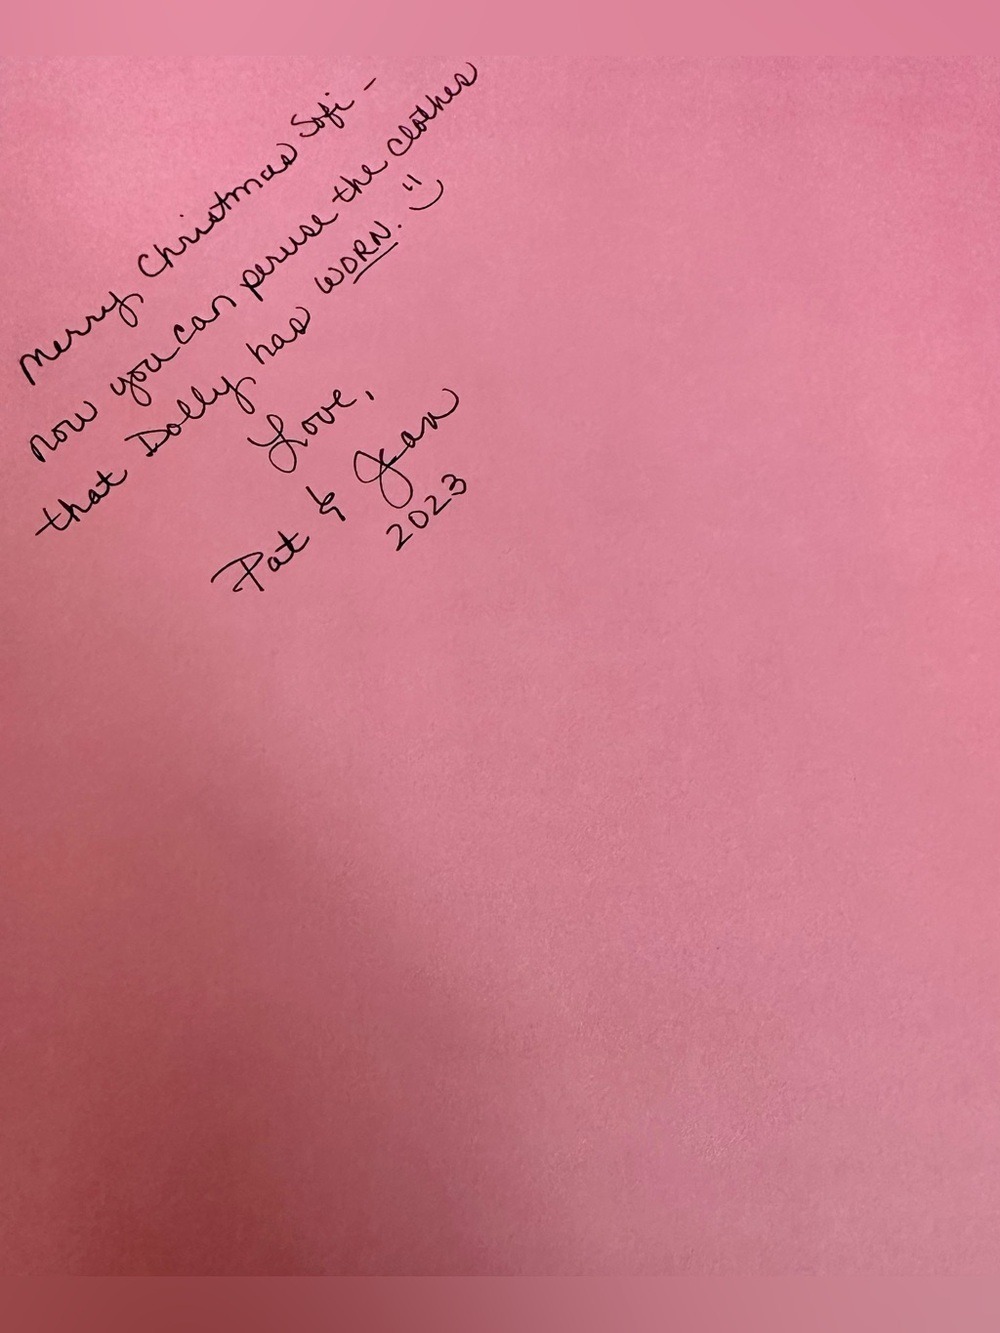 Merry Christmas Sofi -
now you can peruse the clothes
that Dolly has WORN. :)
Love,
Pat & Jean
2023